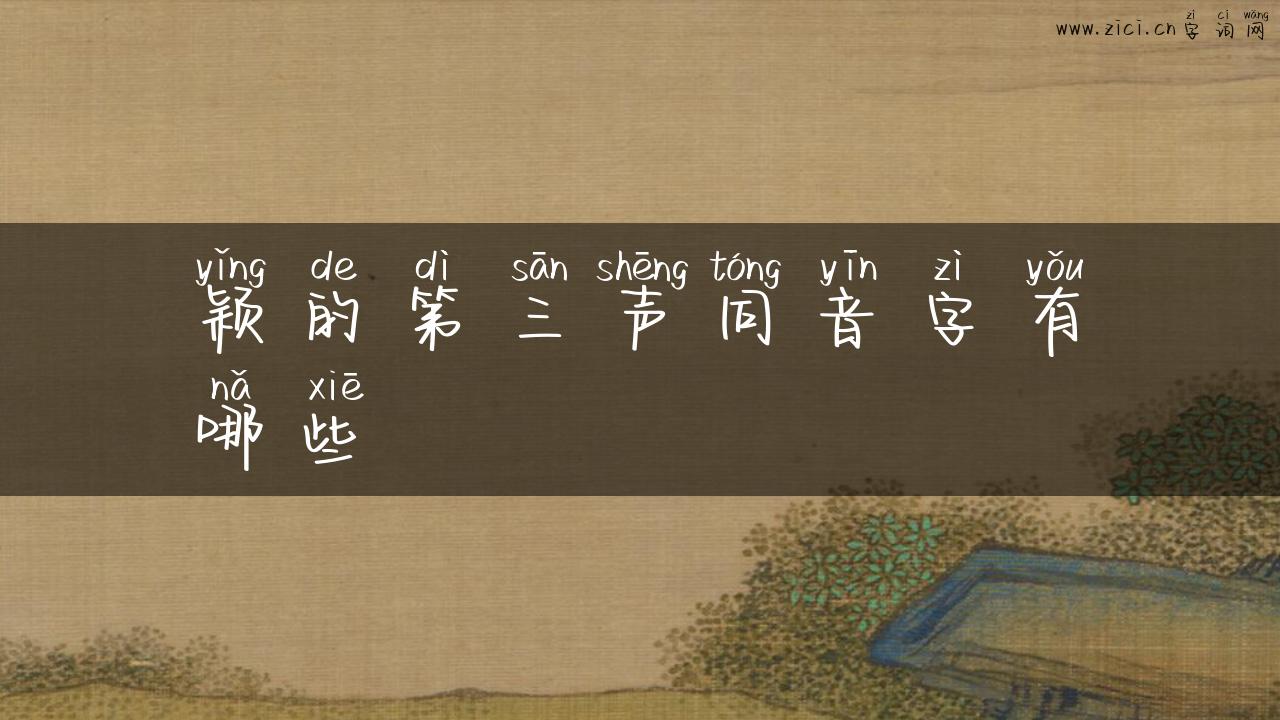 zì cí wǎng
www.zici.cn 字词网
yǐng de dì sān shēng tóng yīn zì yǒu
颖的第三声同音字有
nǎ xiē
哪些